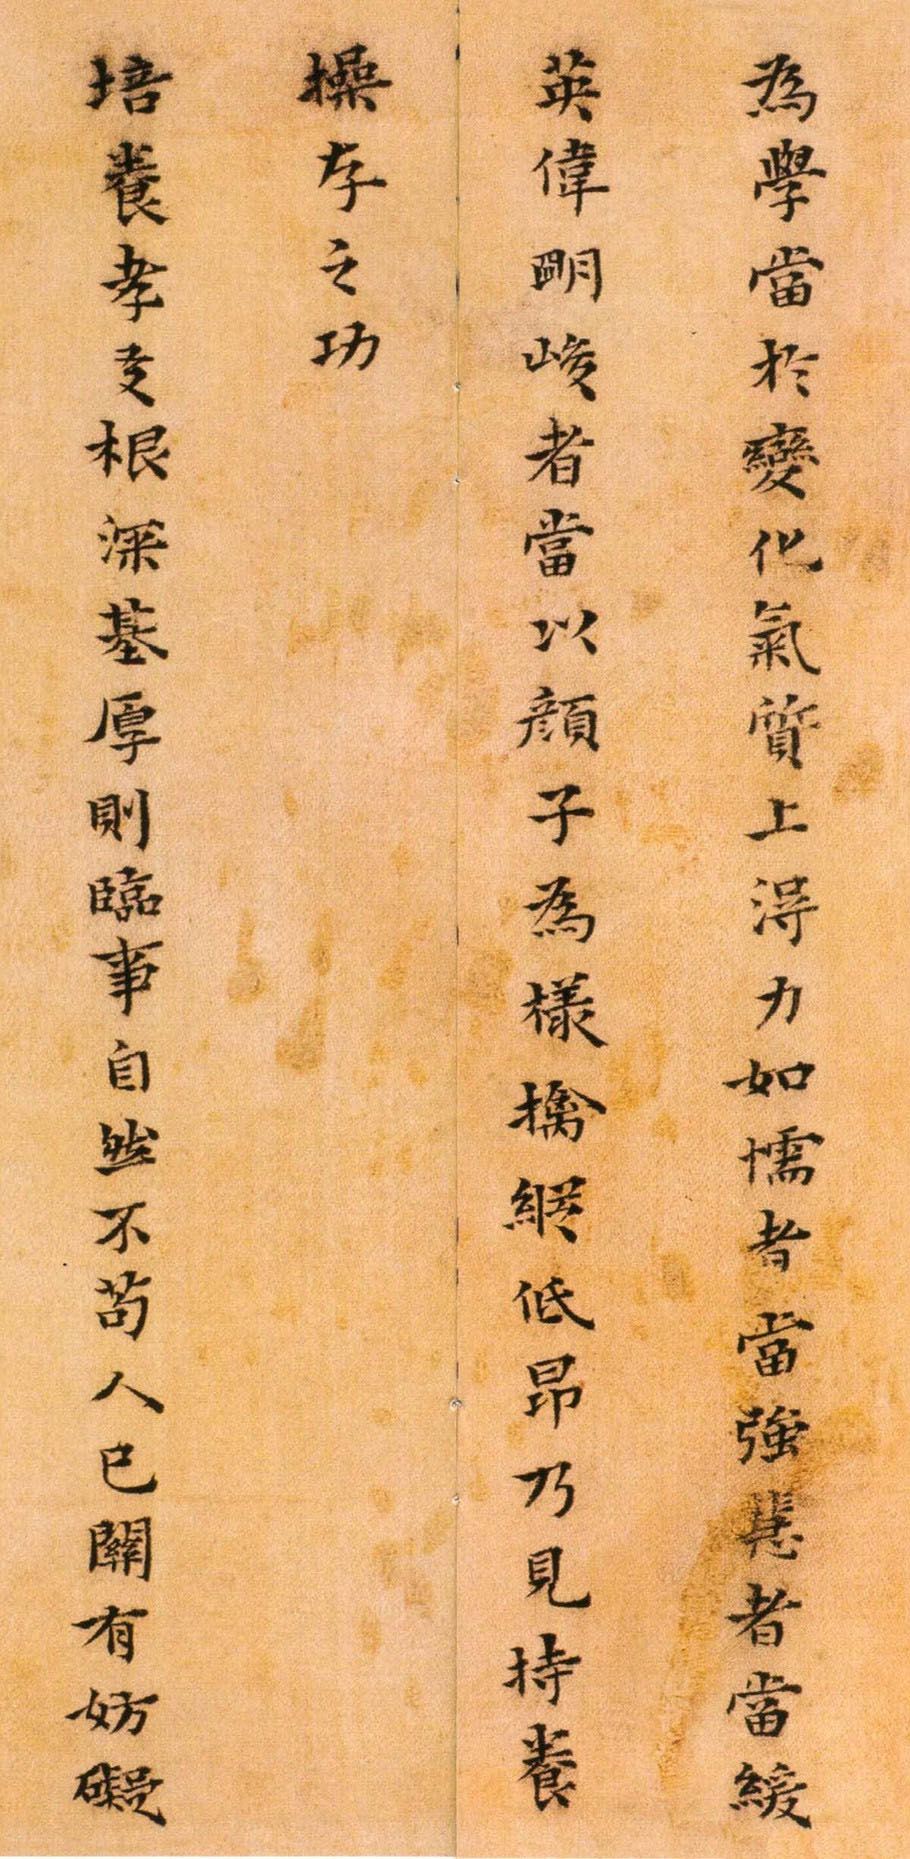 為學當於變化氣質上得力如懦者當強恚者當緩
英偉明峻者當以顏子為樣擒縱低昂乃見持養
操存之功
培養孝友根深基厚則臨事自然不苟人己關有妨礙